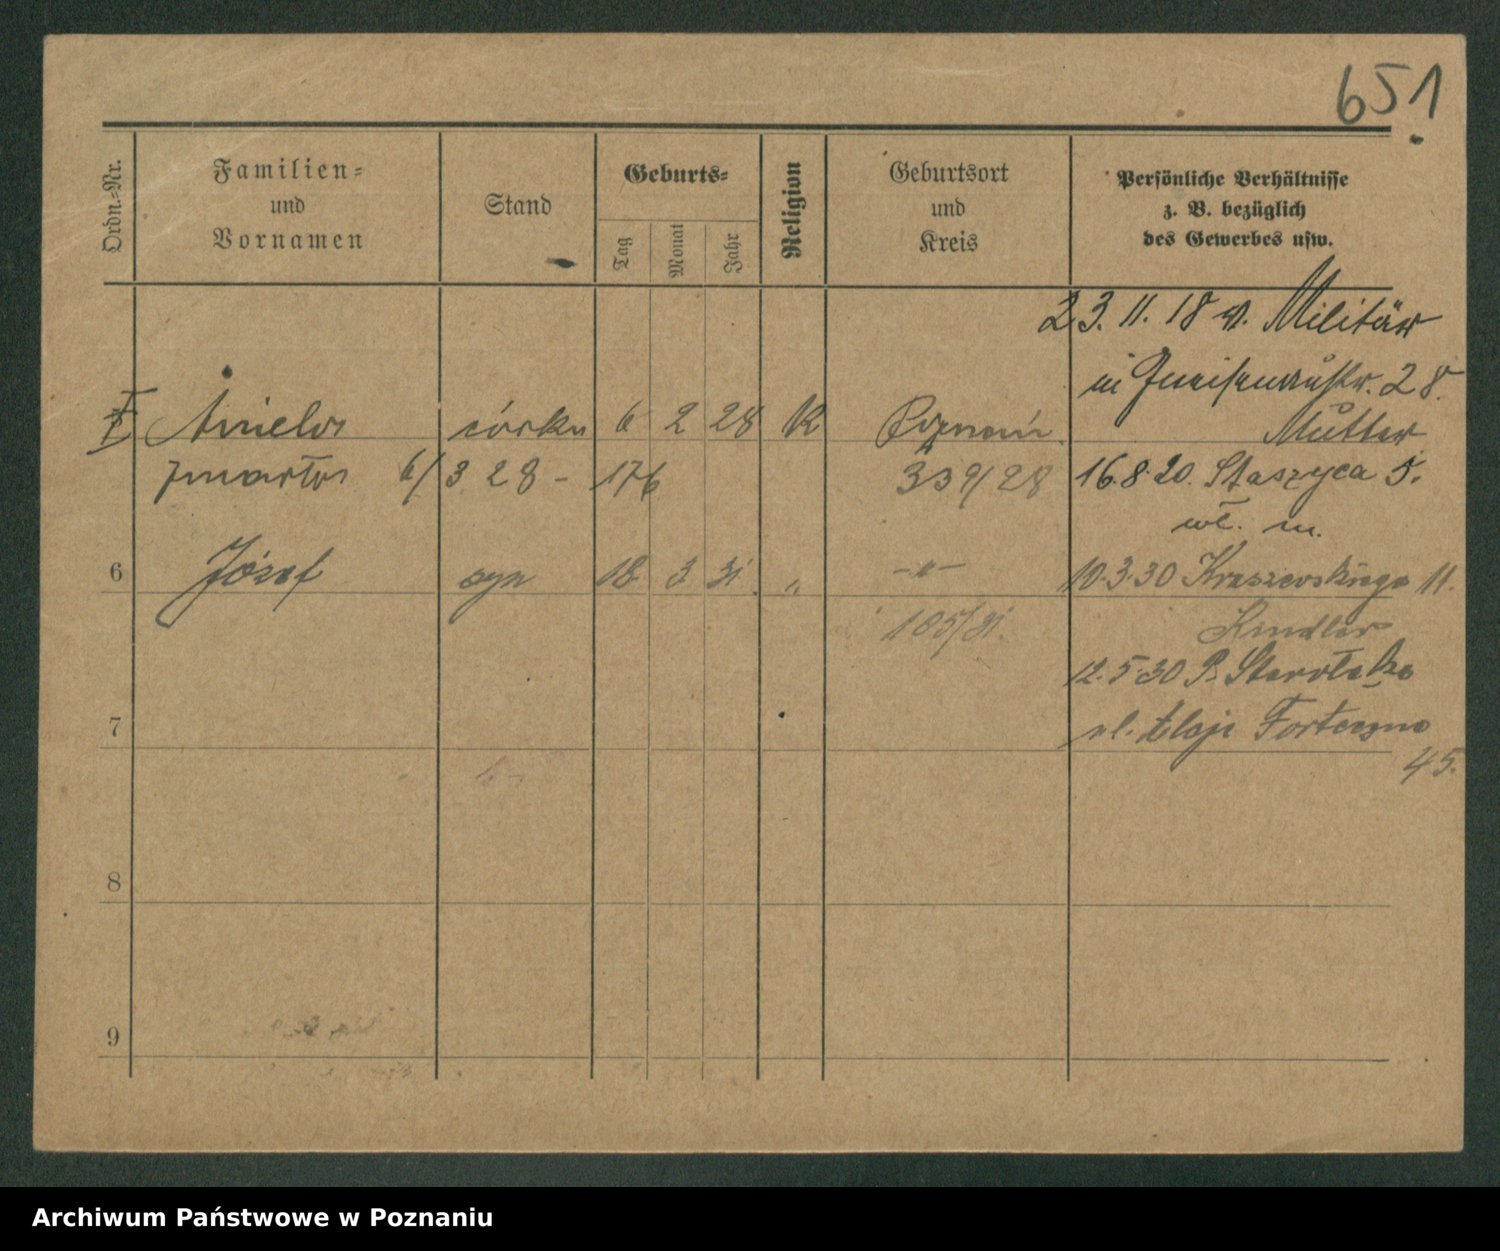 651
Ordn.-Nr.
Familien-
und
Vornamen
Stand
Geburts-
Tag
Monat
Jahr
Religion
Geburtsort
und
Kreis
Persönliche Verhältnisse
z. B. bezüglich
des Gewerbes usw.
23. 11. 18 v. Militär
in Gneisenaustr. 28.
Mutter
Aniela córka 6 2 28 K Poznań
zmarła 6/3 28 - 176 339/28
16.8.20. Staszyca 5.
wł. m.
6 Józef syn 18 3 31 " -"-
185/31.
10.3.30 Kraszewskiego 11.
Kindler
12.5.30 P. Starołęka
ul. Forteczna
45.
7
8
9
Archiwum Państwowe w Poznaniu